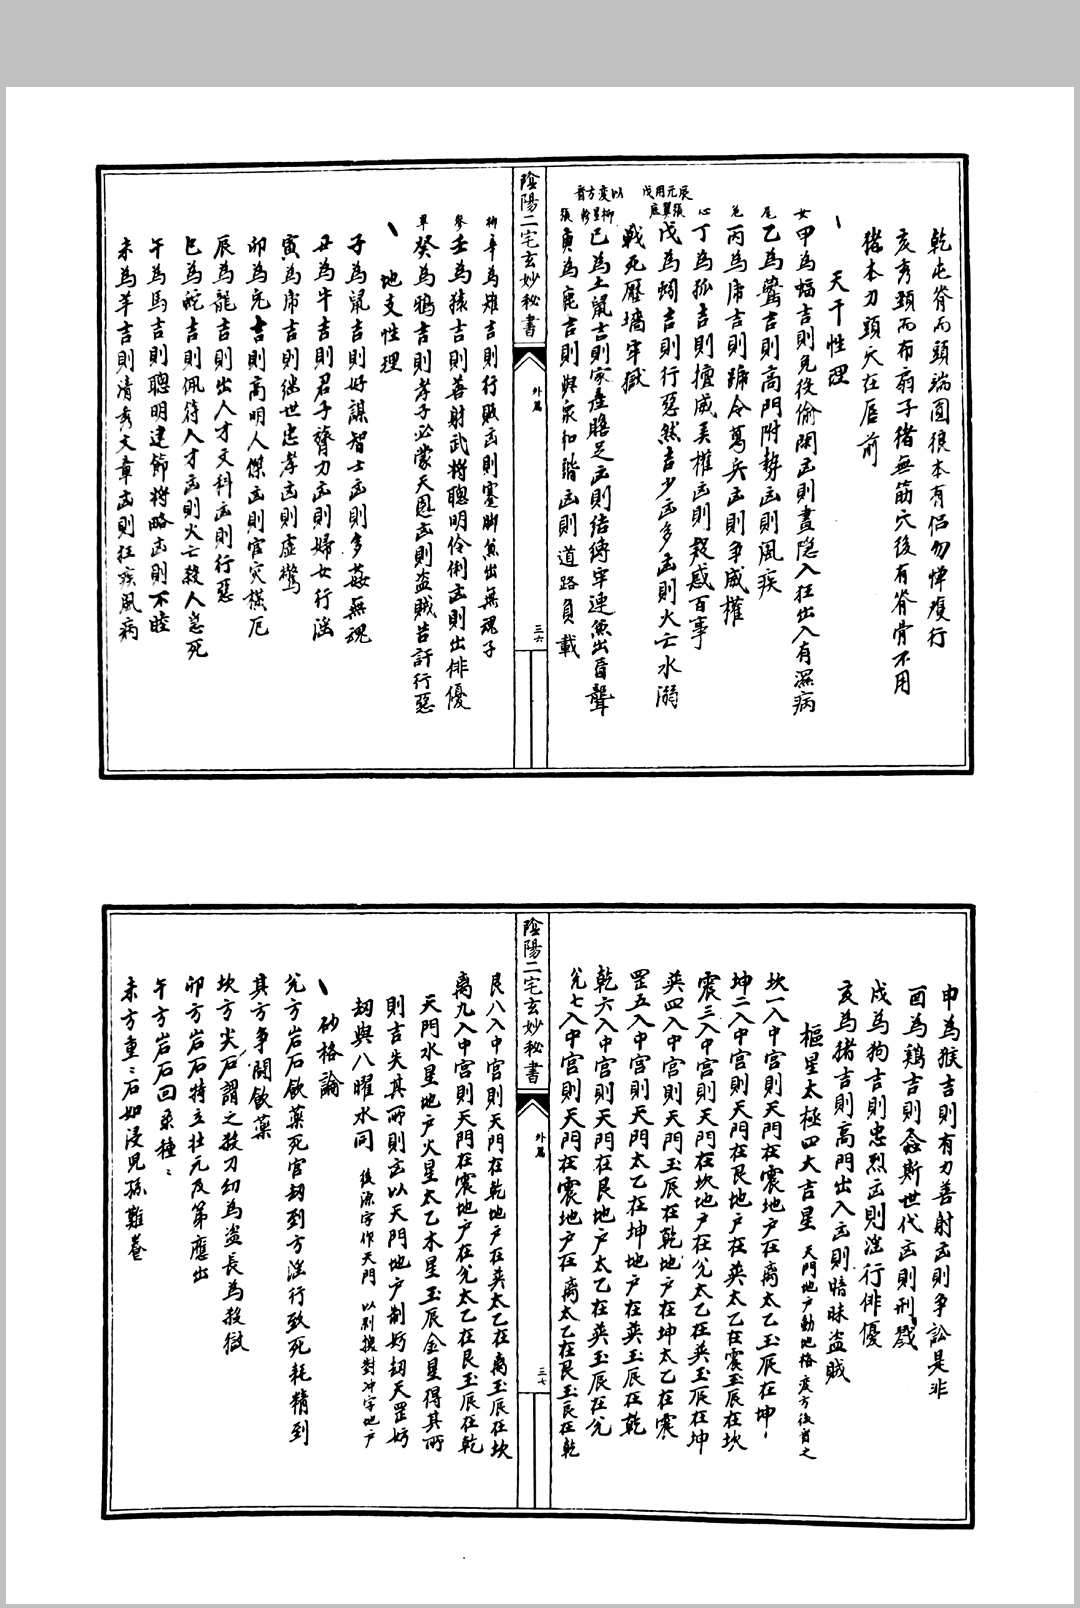 乾屯脊而頭端圓狼本有侣勿憚瘦行
亥秀頸而布扇子猪無筋穴後有脊骨不用
猪本刀頭穴在唇前
天干性理
女甲為蝠吉則見役偷閑凶則晝隐入狂出入有濕病
尾乙為鶯吉則高門附勢凶則風疾
丙為虎吉則號令萬兵凶則争威權
心丁為狐吉則擅威美權凶則殺惑百事
戊為蜘吉則行惡然吉少凶多凶則火亡水溺
戰死壓墻牢獄
辰元用戊
張翼底
以変方首
柳星軫
己為土鼠吉則家產贍足凶則结縛牢連魚出盲聾
張庚為鹿吉則與衆和諧凶則道路負載
陰陽二宅玄妙秘書
外篇
三六
柳辛為雉吉則行賊凶則蹇脚魚出無魂子
參壬為猿吉則善射武将聰明伶俐凶則出俳優
畢癸為鴉吉則孝子必蒙天恩凶則盗賊苦訐行惡
地支性理
子為鼠吉則好謀智士凶則多姦無魂
丑為牛吉則君子膂力凶則婦女行滛
寅為虎吉則継世忠孝凶則虚驚
卯為兎吉則高明人傑凶則官灾横厄
辰為龍吉則出人才文科凶則行惡
巳為蛇吉則佩符入才凶則火亡殺人急死
午為馬吉則聰明建節将略凶則不睦
未為羊吉則清秀文章凶則狂疾風病
申為猴吉則有刀善射凶則争訟是非
酉為鶏吉則螽斯世代凶則刑戮
戌為狗吉則忠烈凶則淫行俳優
亥為猪吉則高門出入凶則暗昧盗賊
樞星太極四大吉星 天門地户動地格变方後首之
坎一入中宫則天門在震地户在离太乙玉辰在坤
坤二入中宫則天門在艮地户在巽太乙在震玉辰在坎
震三入中宫則天門在坎地户在兊太乙在巽玉辰在坤
巽四入中宫則天門玉辰在乾地户在坤太乙在震
罡五入中宫則天門太乙在坤地户在巽玉辰在乾
乾六入中宫則天門在艮地户太乙在巽玉辰在兊
兊七入中宫則天門在震地户在离太乙在艮玉辰在乾
陰陽二宅玄妙秘書
外篇
三七
艮八入中宫則天門在乾地户在巽太乙在离玉辰在坎
离九入中宫則天門在震地户在兊太乙在艮玉辰在乾
天門水星地户火星太乙木星玉辰金星得其所
則吉失其所則凶以天門地户制妨刼天罡妨
刼與八曜水同 後源字作天門 以别接對冲字地户
砂格論
兊方岩石飲藥死官刼到方淫行致死耗精到
其方争鬪飲藥
坎方尖石謂之殺刀幻為盗長為殺獄
卯方岩石特立壮元及第應出
午方岩石回禄種〻
未方重〻石如浸兒孫難卷